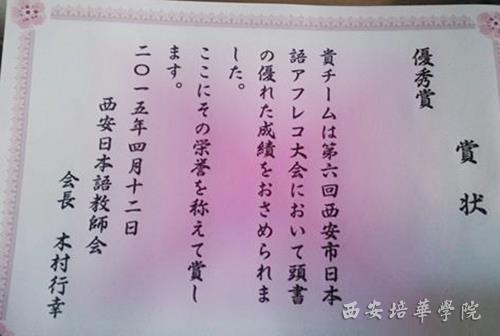 賞状
優秀賞
貴チームは第六回西安市日本
語アフレコ大会において頭書
の優れた成績をおさめられま
した。
ここにその栄誉を称えて賞し
ます。
二〇一五年四月十二日
西安日本語教師会
会長 木村行幸
西安培華学院